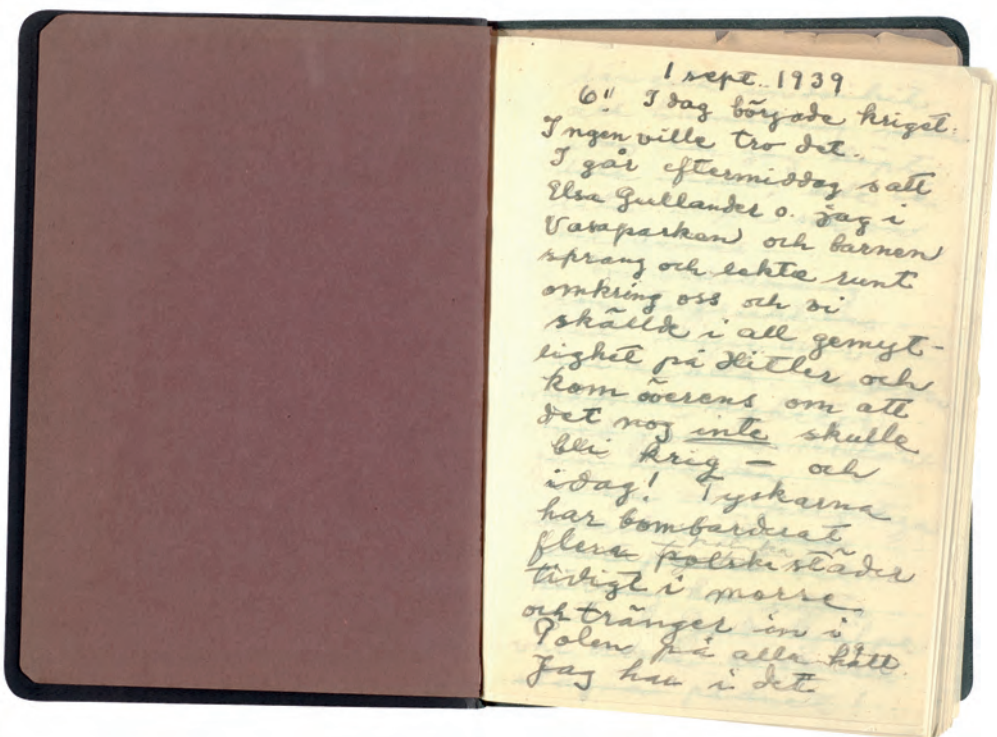 1 sept. 1939
I dag började kriget.
Ingen ville tro det.
I går eftermiddag satt
Elsa Gullander o. jag i
Vasaparken och barnen
sprang och lekte runt
omkring oss och vi
skällde i all gemyt-
lighet på Hitler och
kom överens om att
det nog inte skulle
bli krig – och
idag! Tyskarna
har bombarderat
flera polska städer
tidigt i morse
och tränger in i
Polen på alla håll.
Jag har i det